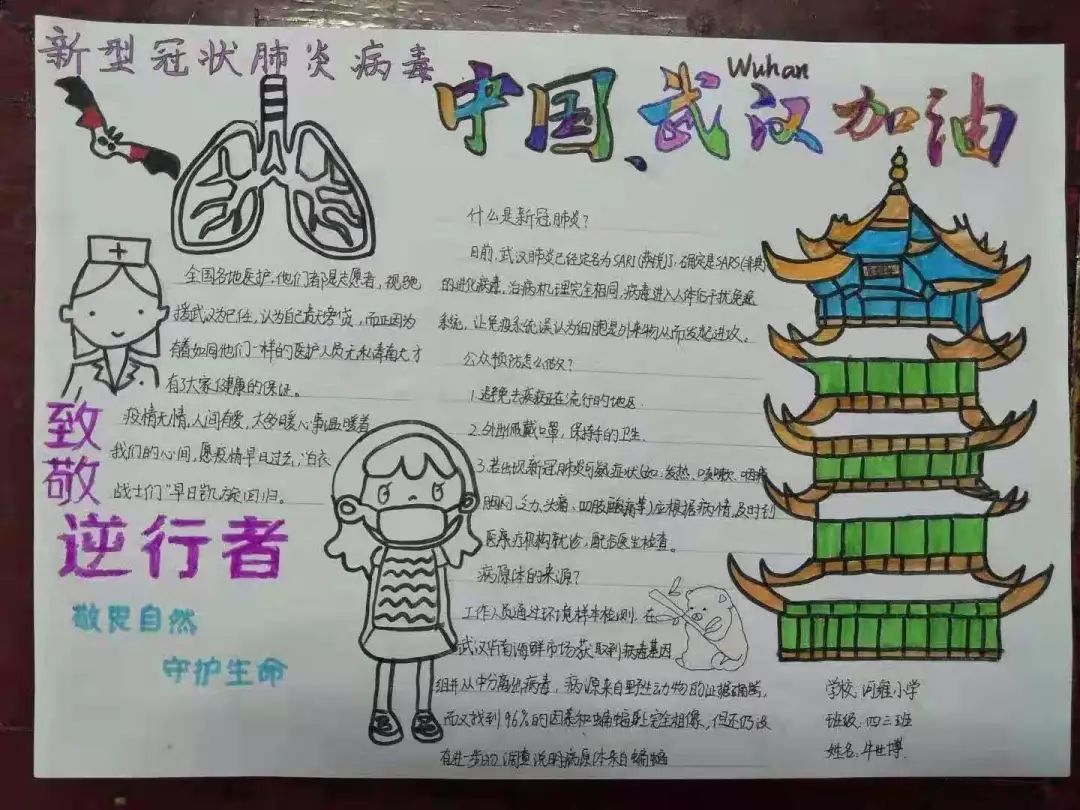 新型冠状肺炎病毒
中国、武汉加油
Wuhan
全国各地医护,他们都是志愿者,视驰
援武汉为己任,认为自己责无旁贷,而正因为
有着如同他们一样的医护人员无私奉献大才
有了大家健康的保证。
疫情无情,人间有爱,太多暖心事温暖着
我们的心间,愿疫情早日过去,"白衣
战士们"早日凯旋回归。
致敬
逆行者
敬畏自然
守护生命
什么是新冠肺炎?
目前,武汉肺炎已经定名为SARI,确定是SARS
的进化病毒,治病机理完全相同,病毒进入人体后干扰免疫
系统,让免疫系统误认为细胞是外来物从而发起进攻。
公众预防怎么做?
1.避免去疾病正在流行的地区.
2.外出佩戴口罩,保持手的卫生.
3.若出现新冠肺炎可疑症状(如:发热、咳嗽、咽痛
胸闷、乏力、头痛、四肢酸痛等)应根据病情,及时到
医疗机构就诊,配合医生检查。
病原体的来源?
工作人员通过环境样本检测,在
武汉华南海鲜市场获取到病毒基因
组并从中分离出病毒,病源来自野生动物的证据确凿,
而又找到96%的因素和蝙蝠身上完全相像,但还仍没
有进一步的调查说明病原体来自蝙蝠
学校:小学
班级:四三班
姓名:牛世博